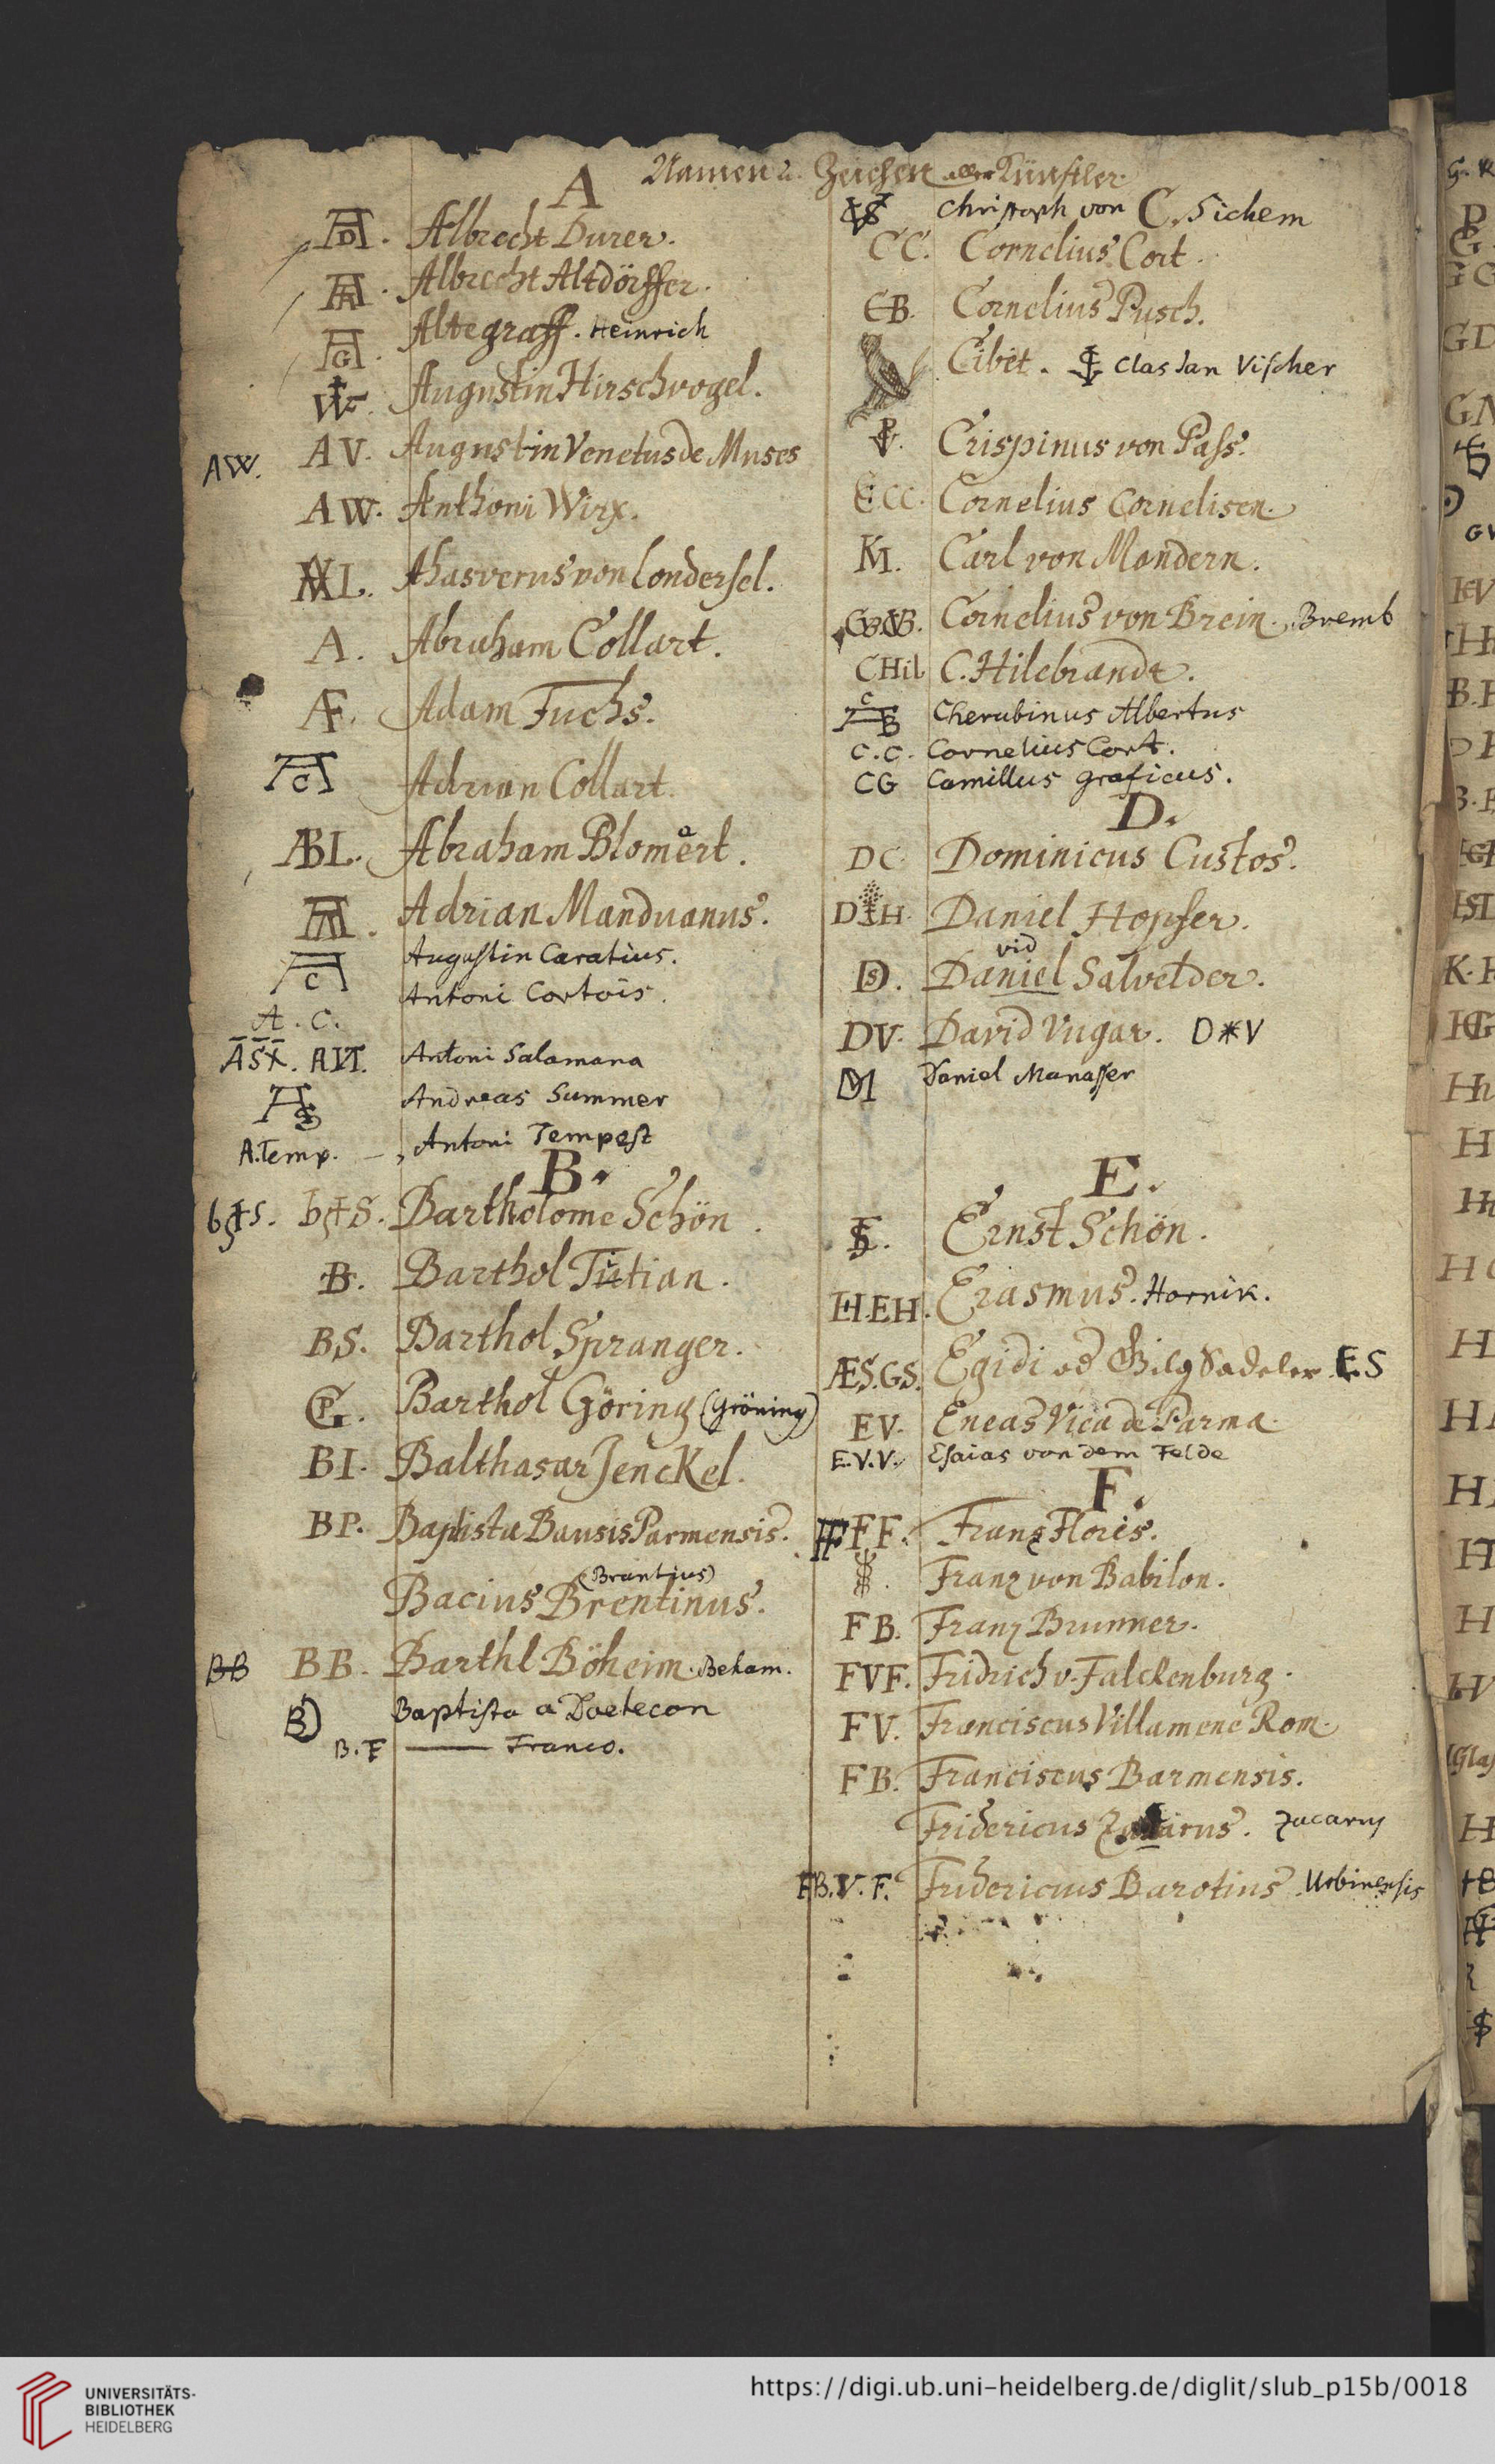 Namen u. Zeichen aller Künstler.
A
AD. Albrecht Durer.
AA. Albrecht Altdörffer.
AG. Altegraff. Heinrich
Augustin Hirschvogel.
AW. AV. Augustin Venetus de Muses
AW. Anthoni Wirx.
AVL. Ahasverus von Londersel.
A. Abraham Collart.
AF. Adam Fuchs.
AC Adrian Collart.
ABL. Abraham Blomert.
AM. Adrian Manduanus.
AC Augustin Caratius.
Antoni Cortois.
A. C.
ASX. AVT. Antoni Salamana
AS Andreas Summer
A. Temp. — Antoni Tempest
B.
b+S. b+S. Bartholome Schön.
B. Barthol Titian.
BS. Barthol Spranger.
G. Barthol Göring (Gröning)
BI. Balthasar Jenckel.
BP. Baptista Bausis Parmensis.
(Brantius)
Bacius Brentinus.
BB BB. Barthl Böheim. Beham.
B) Baptista a Doetecon
B. F —— Franco.
Christoph von C. Sichem
CC. Cornelius Cort.
CB. Cornelius Pusch.
Cibet. Clas Jan Vischer
Crispinus von Pass.
CCC. Cornelius Cornelisen.
KM. Carl von Mandern.
Cornelius von Brein. Bremb
CHil C. Hilebrandt.
Cherubinus Albertus
C. C. Cornelius Cort.
CG Camillus graficus.
D.
DC Dominicus Custos.
D H. Daniel Hopfer.
vid
DS. Daniel Salvetder.
DV. David Vngar. D*V
DM Daniel Manasser
E.
ES. Ernst Schön.
EH. EH. Erasmus. Hornik.
ÆS. GS. Egidi od Gilg Sadeler. E. S
EV. Eneas Vica de Parma.
E. V. V. Esaias von dem Felde
F.
FF FF. Franz Floris.
Franz von Babilon.
FB. Franz Brunner.
FVF. Fridrich v. Falckenburg.
FV. Franciscus Villamene Rom.
FB. Franciscus Barmensis.
Fridericus Zucarus. Zucarus
FB. V. F. Fridericus Barotius Urbinensis
UNIVERSITÄTS-
BIBLIOTHEK
HEIDELBERG
https://digi.ub.uni-heidelberg.de/diglit/slub_p15b/0018